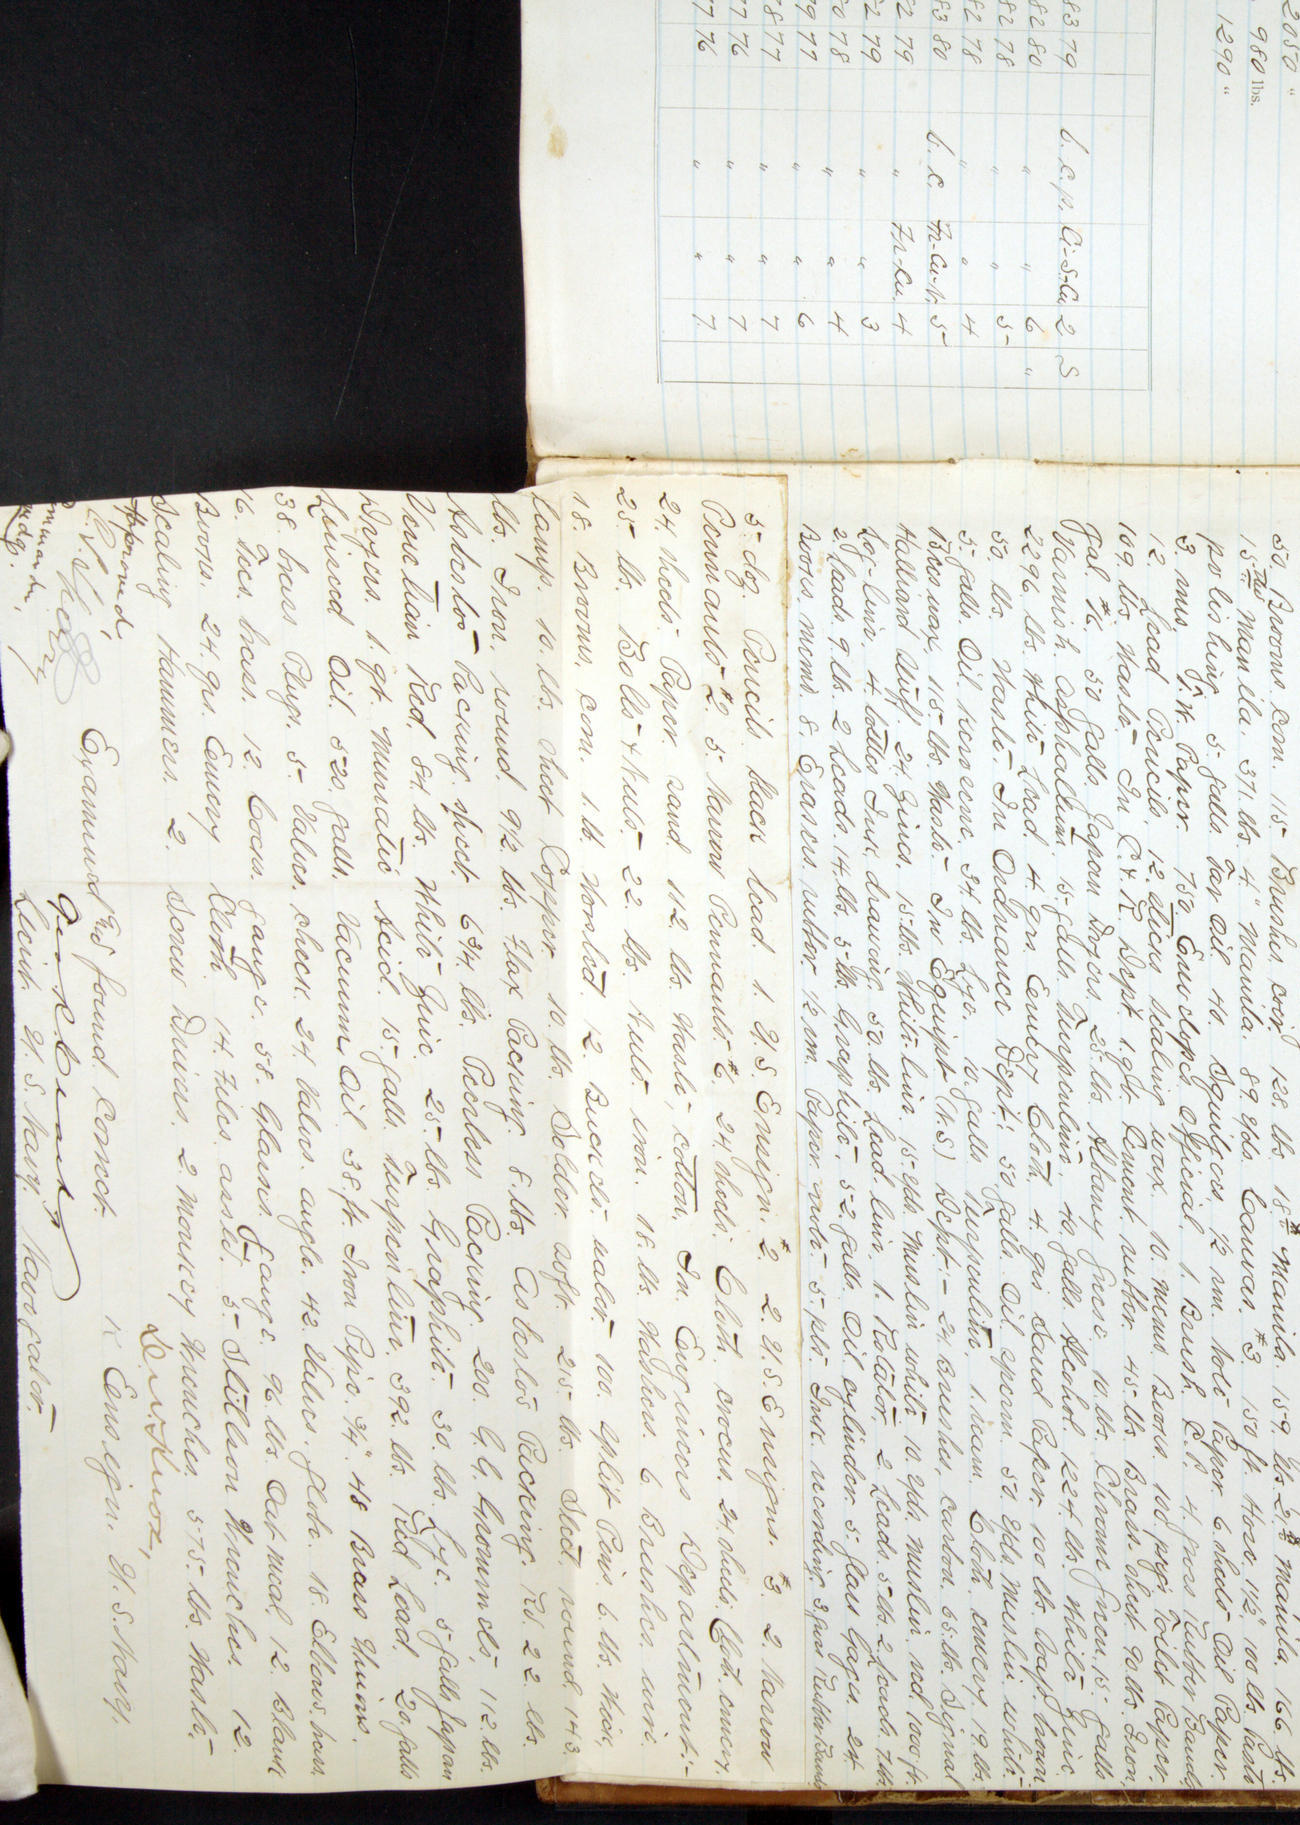 2050 "
980 lbs.
1290 "
83 79 b. c. p. Ci-S-Cu 2 S
82 80 " " 6 "
82 78 " " 5
82 78 " " 4
83 80 b. c. Fr-Cu-N. 5
82 79 " Fr-Cu. 4
82 79 " " 3
80 78 " " 4
79 77 " " 6
78 77 " " 7
77 76 " " 7
77 76 " " 7
50. Brooms, Corn. 115. Brushes, 128. lbs. 18# Manila. 159. lbs. 2# Manila. 166. lbs.
15 Thd Manilla. 371. lbs. 4." Manila. 89. yds. Canvas. #3. 150 ft. Hose, 1½" 100 lbs. Paste
polishing. 5. galls. Tar oil. 40. Squilgees. ½ rm. Note Paper 6. sheets Oil Paper.
3. rms. T.W. Paper. 750. Envelopes Official. 1. Brush, C.P. 4. gross Rubber Bands,
12. Lead Pencils, 12. sticks sealing wax. 10. Memo. Books. 100 pkgs. Toilet Paper.
109. lbs. Waste. In C. & R. Dept. 1. qt. Cement rubber. 45. lbs. Brass, sheet. 90. lbs. Iron,
gal. #16. 50 galls Japan Dryers. 25. lbs. Albany Grease. 10. lbs. Chrome Green, 15. galls
Varnish asphaltum. 15. galls. Turpentine, 40. galls. Alcohol. 1224. lbs. White Zinc,
2296. lbs. White Lead. 4. qrs. Emery Cloth. 4. qrs Sand Paper. 100 lbs. Soap, brown
50. lbs. Waste. In Ordnance Dep't: 50 galls. Oil sperm. 50 yds. Muslin white.
5. galls. Oil kerosene. 34. lbs. Lye. 10. galls Turpentine. 1. ream Cloth emery. 19. lbs.
Beeswax. 115. lbs. Waste. In Equip't (N.S) Dep't:- 24 Brushes, carbon. 65. lbs. Signal
Halliard Stuff. 24. yds. 15. lbs. White line. 15. yds. Muslin white. 10. yds. muslin, red. 1000 ft.
Log-line. 4. bottles Ink, drawing. 50. lbs. Lead line. 1. Rotator. 2 Leads. 5. lbs. 2. Leads. 7. lbs.
2. Leads. 9. lbs. 2 Leads. 14. lbs. 5 lbs. Graphite. 52. galls. Oil cylinder. 5. glass Gages. 24.
Books, memo. 8. Erasers, rubber. ½ rm. Paper, note. 5. pts. Ink, recording. 3 gross Rubber Bands
5 doz. Pencils black lead. 1. U.S. Ensign. #2. 2. U.S. Ensigns. #3. 2. Narrow
Pennants #2. 5. Narrow Pennants. #6. 24. sheets. Cloth, crocus. 24. sheets. Cloth, emery.
24. sheets. Paper sand. 112. lbs. Waste, cotton. In. Engineers Department:-
25. lbs. Bolts & Nuts. 22. lbs. Nuts. iron. 18. lbs. Washers. 6. Brushes. wire.
18. Brooms, corn. 1. lb. Worsted. 2. Buckets. water. 100. Split Pins. 6. lbs. Wick,
lamp. 10. lbs. Sheet Copper. 10. lbs. Solder soft. 25. lbs. Steel, round. 143.
lbs. Iron, round. 9½. lbs. Flax Packing. 8. lbs. Asbestos Packing, Rd. 22. lbs.
Asbestos Packing, sheet. 6¾. lbs. Peerless Packing. 200. G. G. Grommets, 112. lbs.
Venetian Red. 84. lbs. White Zinc. 25. lbs. Graphite. 30. lbs. Lye. 5. galls. Japan
Dryers. 1. qt. Muriatic Acid. 15. galls. Turpentine. 392. lbs. Red Lead. 20. galls
Linseed Oil. 520. galls. Vacuum Oil. 38. ft. Iron Pipe, ¾". 48 Brass Unions.
38. brass Plugs. 5. Valves, check. 24. Valves. angle. 42. Valves, globe. 18. Elbows, brass.
16. Tees, brass. 12. Cocks. gauge. 58. Glasses. Gauge. 96. lbs. Oat meal, 12. Blank
Books. 24. qrs. Emery Cloth. 14. Files. ass'td. 5. Stillson Wrenches. 12.
Scaling Hammers. 2. Screw Drivers. 2. Monkey Wrenches. 575. lbs. Waste.
Approved,
Commander,
Comdg.
Examined and found correct.
Ensign, U.S. Navy.
Lieut. U. S. Navy, Navigator.